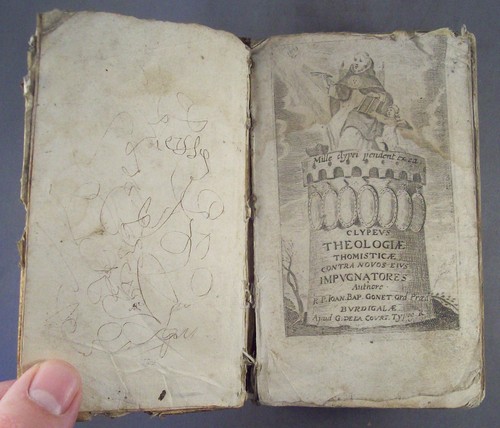 Mille clypei pendent ex ea
CLYPEVS
THEOLOGIÆ
THOMISTICÆ
CONTRA NOVOS EIUS
IMPVGNATORES
Authore
R. P. IOAN. BAP. GONET Ord. Præd.
BVRDIGALÆ
Apud G. DE LA COURT, Typog. R.